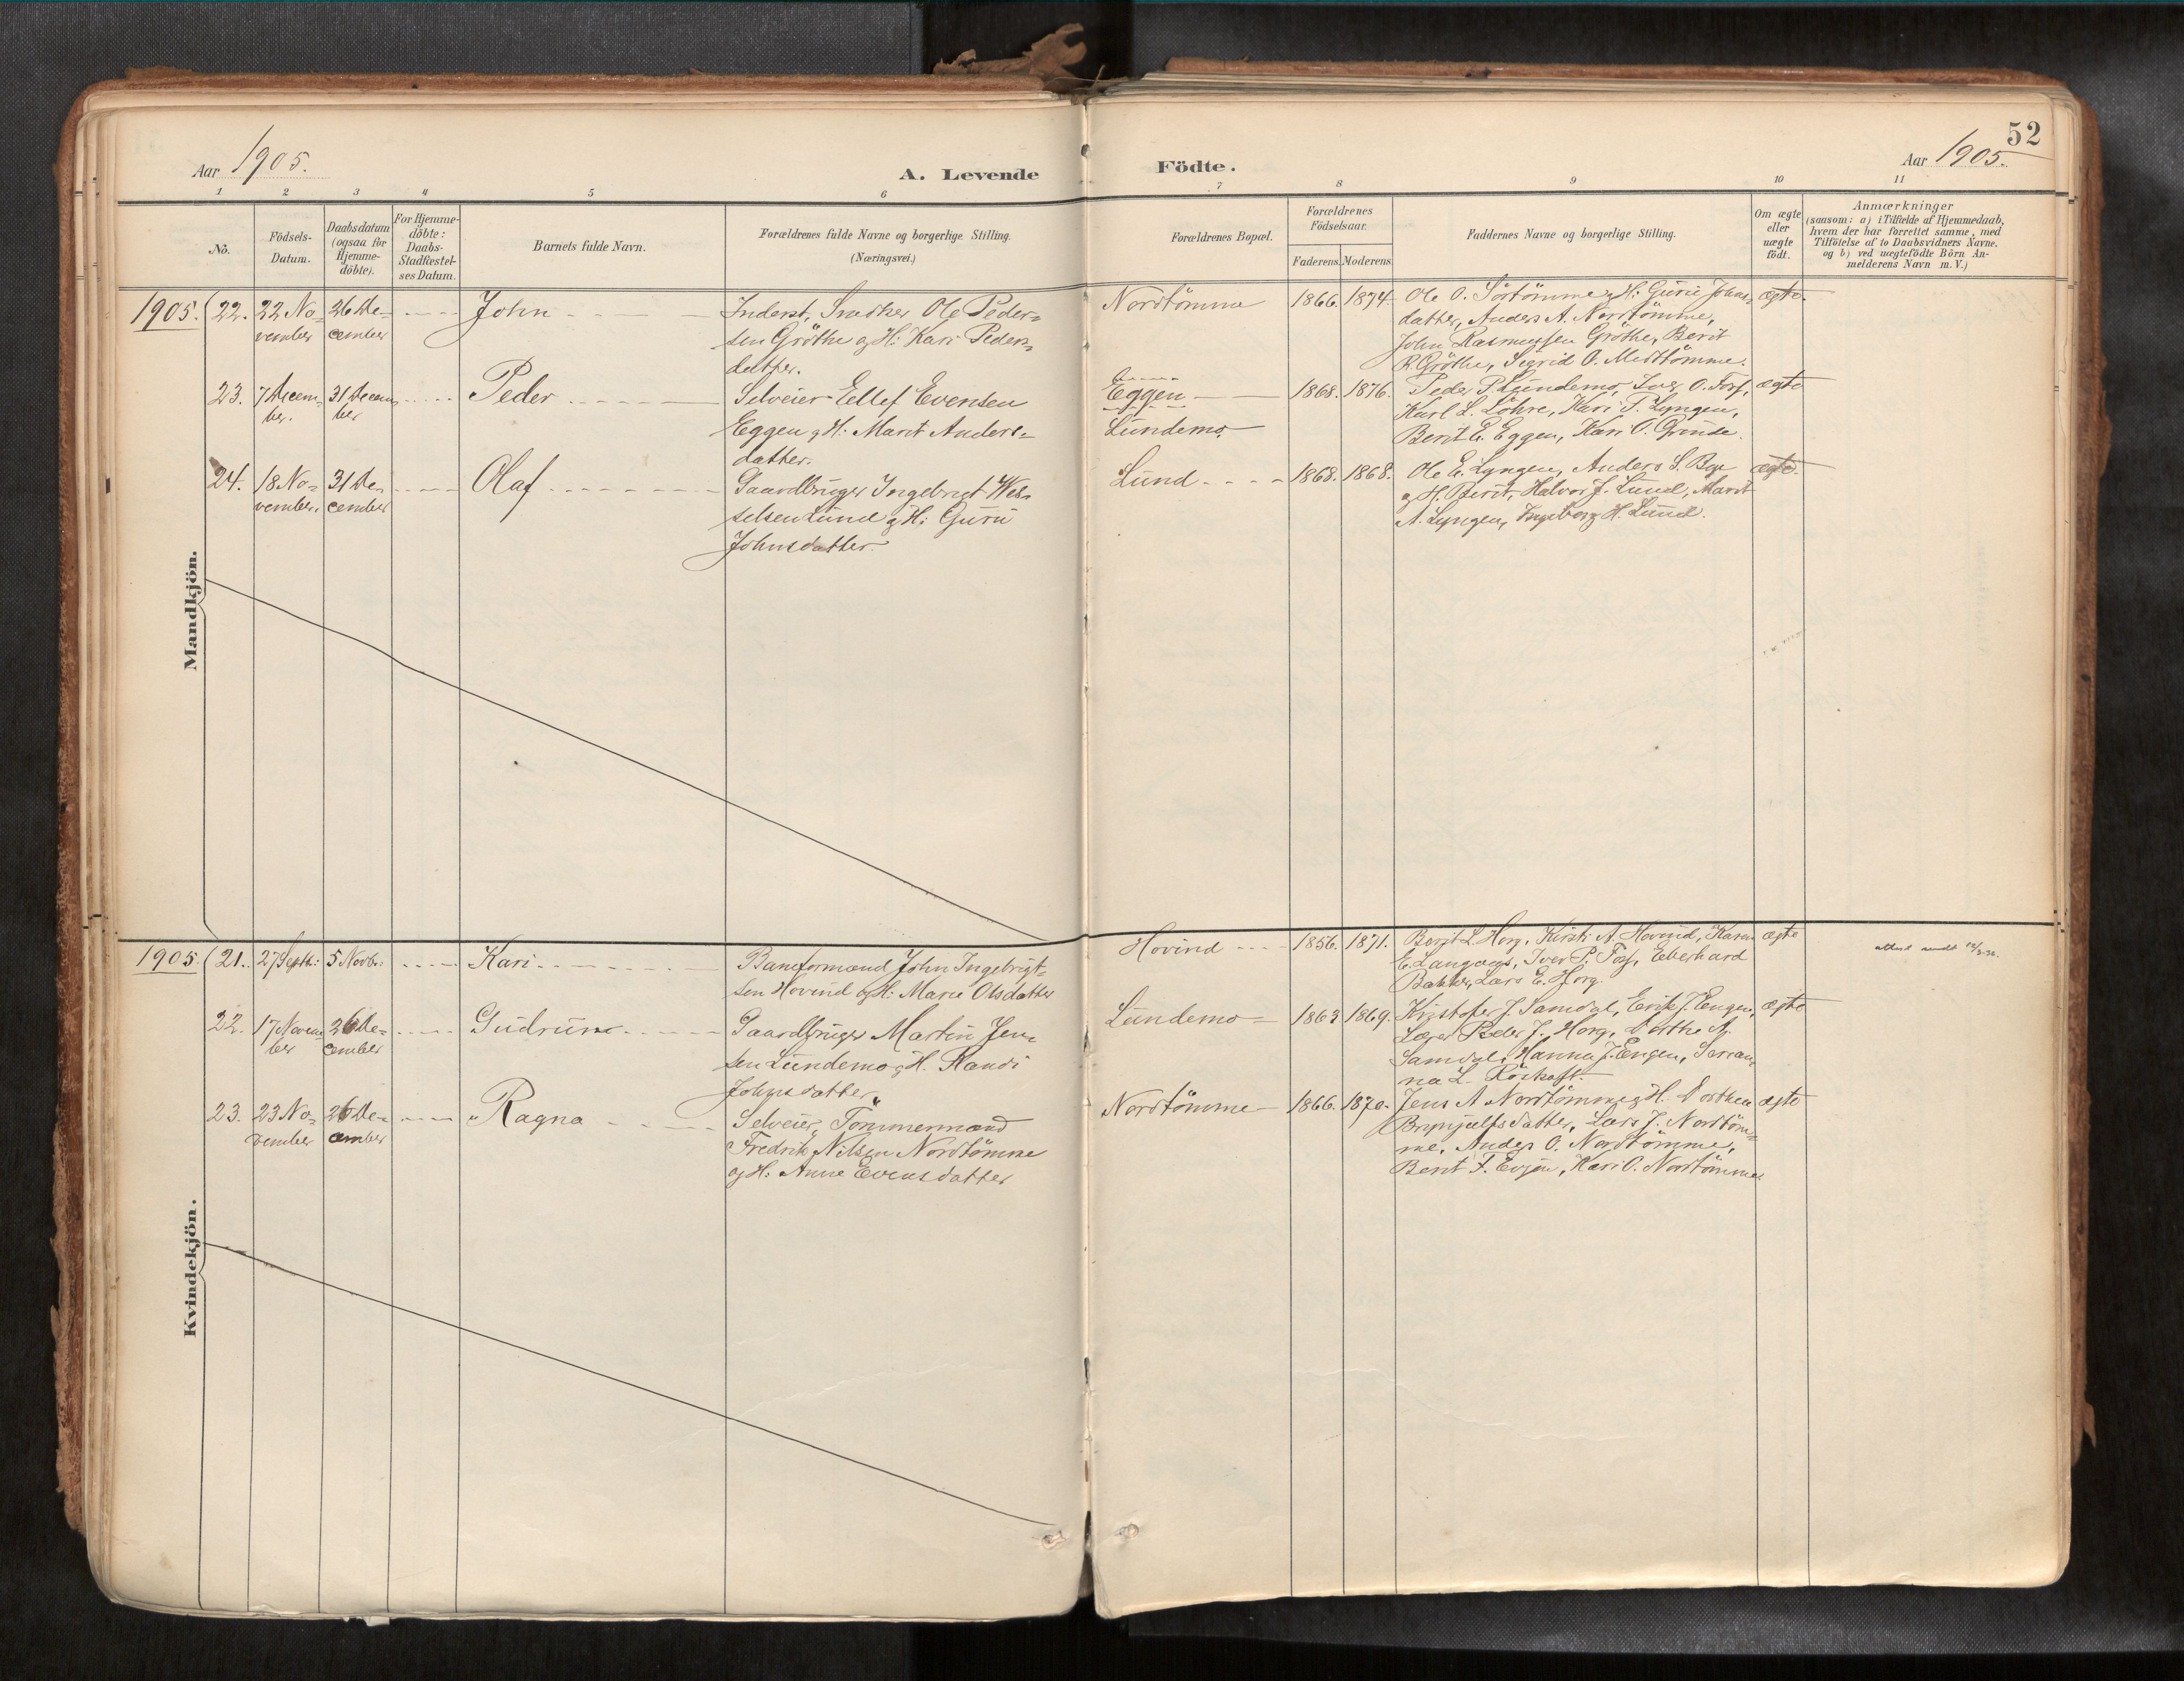 52
Aar 1905.
A. Levende
Födte.
Aar 1905.
1 2 3 4 5 6 7 8 9 10 11
No.
Födsels-
Datum.
Daabsdatum
(ogsaa for
Hjemme-
döbte).
For Hjemme-
döbte:
Daabs-
Stadfestel-
ses Datum.
Barnets fulde Navn.
Forældrenes fulde Navne og borgerlige Stilling.
(Næringsvei.)
Forældrenes Bopæl.
Forældrenes
Födselsaar.
Faderens. Moderens.
Faddernes Navne og borgerlige Stilling.
Om ægte
eller
uægte
födt.
Anmærkninger
(saasom: a) i Tilfælde af Hjemmedaab,
hvem der har forrettet samme, med
Tilföielse af to Daabsvidners Navne.
og b) ved uægtefödte Börn An-
melderens Navn m. V.)
Mandkjön.
1905. 22. 22 No-
vember
26 De-
cember
John
Inderst, Snedker Ole Peder-
sen Gröthe og H: Kari Peders-
datter.
Nordtömme
1866. 1874.
Ole O. Sörtömme og H: Gurie Johns-
datter, Anders A. Nordtömme,
John Rasmussen Gröthe, Berit
R. Gröthe, Sigrid O. Midttömme.
ægte.
23. 7 Decem-
ber.
31 Decem-
ber
Peder
Selveier Ellef Evensen
Eggen og H: Marit Anders-
datter.
Eggen
Lundemo
1868. 1876.
Peder P. Lundemo, Iver O. Foss,
Karl L. Löhre, Kari P. Lyngen,
Berit E. Eggen, Kari O. Grinde.
ægte
24. 18 No-
vember.
31 De-
cember
Olaf
Gaardbruger Ingebrigt Wes-
selsen Lund og H: Guru
Johnsdatter.
Lund
1868. 1868.
Ole E. Lyngen, Anders S. Bye
og H. Berit, Halvor J. Lund, Marit
A. Lyngen, Ingeborg H. Lund.
ægte.
Kvindekjön.
1905. 21. 27 Septb: 5 Novb:
Kari
Baneformand John Ingebrigt-
sen Hovind og H: Marie Olsdatter
Hovind
1856. 1871.
Berit L. Horg, Kirsti A. Hovind, Karen
E. Langaas, Iver P. Foss, Eberhard
Bakken, Lars E. Horg.
ægte
22. 17 Novem-
ber
26 De-
cember
Gudrun
Gaardbruger Martin Jen-
sen Lundemo og H. Randi
Johnsdatter
Lundemo
1863 1869.
Kristofer J. Samdal, Erik J. Engen,
Peder J. Horg, Dorthe M.
Samdal, Hanna J. Engen,
na L. Röskaft.
ægte
23. 23 No-
vember
26 De-
cember
Ragna
Selveier, Tömmermand
Fredrik Nilsen Nordtömme
og H: Anne Evensdatter
Nordtömme
1866. 1870.
Jens A. Nordtömme og H. Dorthea
Brynjulfsdatter, Lars J. Nordtöm-
me, Anders O. Nordtömme,
Berit F. Evjen, Kari O. Nordtömme
ægte